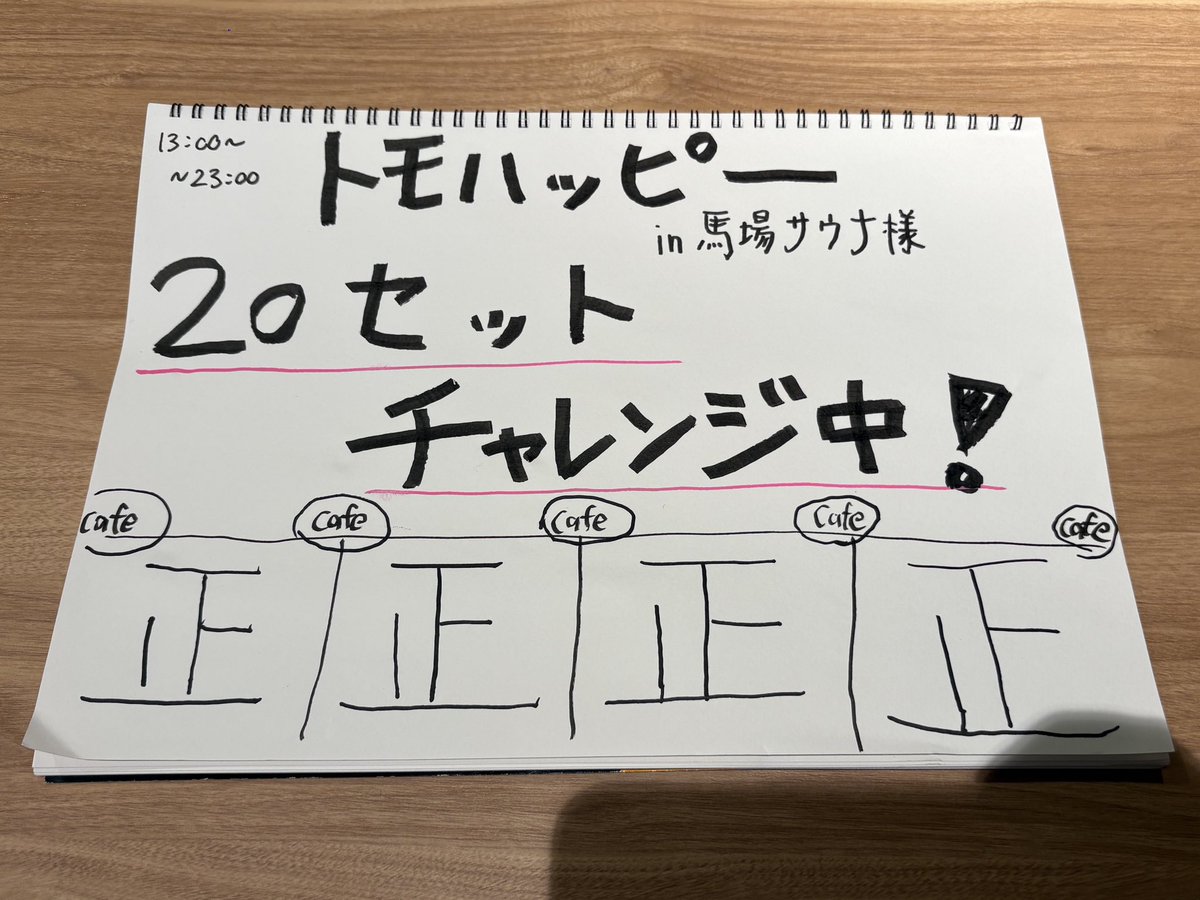 13:00~
~23:00
トモハッピー
in 馬場サウナ様
20セット
チャレンジ中!
cafe cafe cafe cafe cafe
正 正 正 正